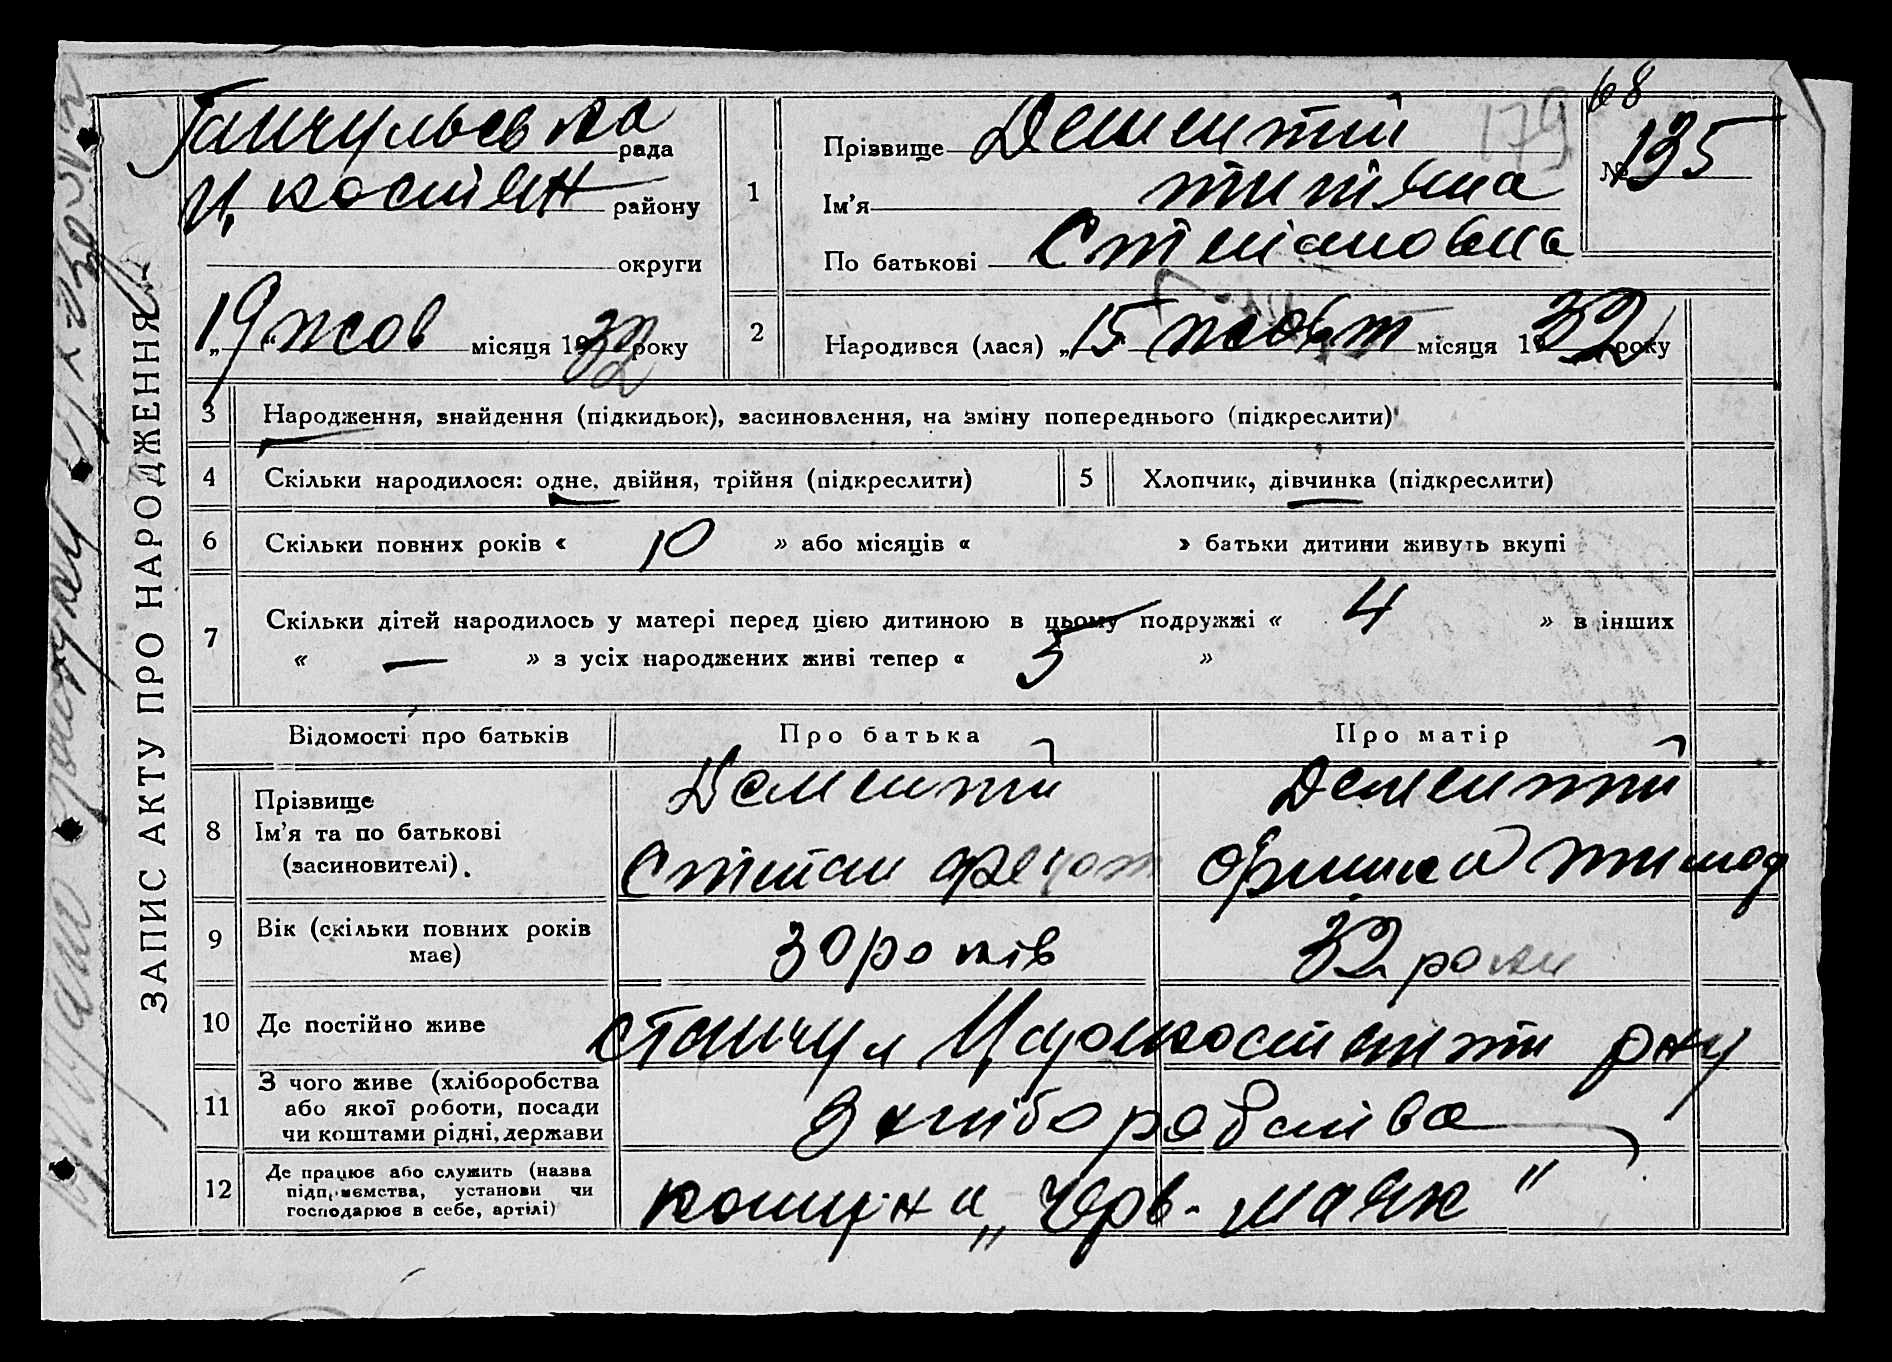 68
179
Ганчульсвка рада
Ц. костян району
округи
„19“ жов місяця 1932 року
1
Прізвище Дементій
Ім'я титяна
По батькові Степановна
№ 135
2
Народився (лася) „15“ жовт місяця 1932 року
ЗАПИС АКТУ ПРО НАРОДЖЕННЯ
3 Народження, знайдення (підкидьок), засиновлення, на зміну попереднього (підкреслити)
4 Скільки народилося: одне, двійня, трійня (підкреслити)
5 Хлопчик, дівчинка (підкреслити)
6 Скільки повних років « 10 » або місяців « » батьки дитини живуть вкупі
7 Скільки дітей народилось у матері перед цією дитиною в цьому подружжі « 4 » в інших
« — » з усіх народжених живі тепер « 5 »
Відомості про батьків
Про батька
Про матір
8
Прізвище
Ім'я та по батькові
(засиновителі).
Дементій
Степан
Дементій
тимоф
9
Вік (скільки повних років
має)
30 років
32 роки
10 Де постійно живе
11
З чого живе (хліборобства
або якої роботи, посади
чи коштами рідні, держави
З хліборобства
12
Де працює або служить (назва
підприємства, установи чи
господарює в себе, артілі)
комуна „Черв. маяк"